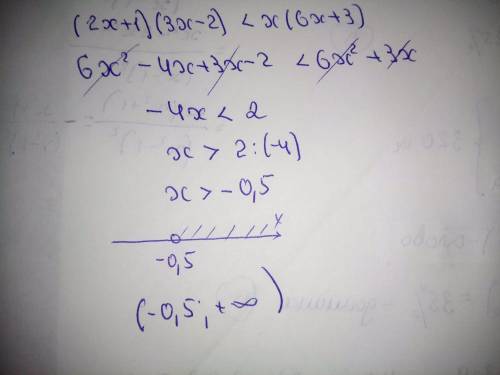 (2x+1)(3x-2) < x(6x+3)
6x² - 4x + 3x - 2 < 6x² + 3x
-4x < 2
x > 2:(-4)
x > -0,5
x
-0,5
(-0,5; +∞)